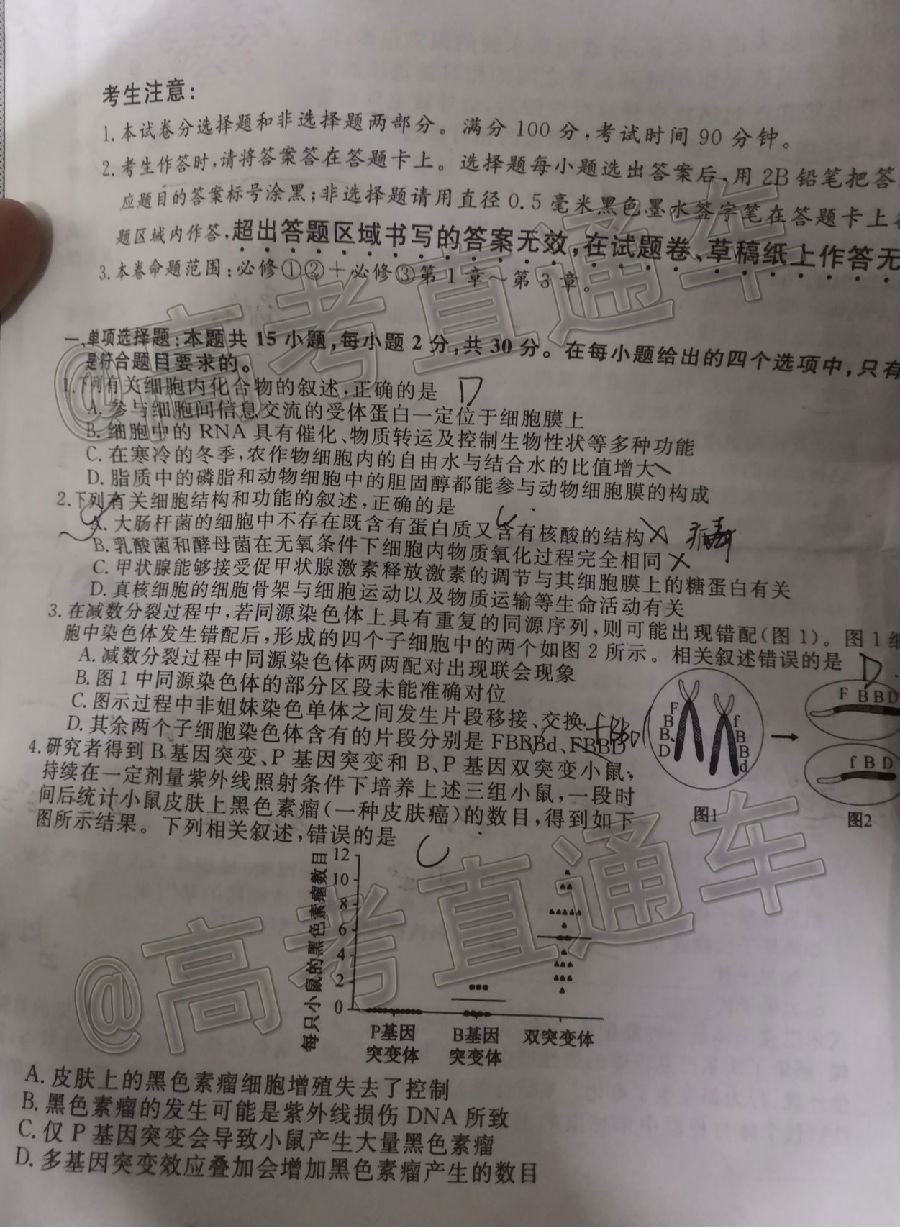 考生注意：
1.本试卷分选择题和非选择题两部分。满分100分，考试时间90分钟。
2.考生作答时，请将答案答在答题卡上。选择题每小题选出答案后，用2B铅笔把答
应题目的答案标号涂黑；非选择题请用直径0.5毫米黑色墨水签字笔在答题卡上
题区域内作答，超出答题区域书写的答案无效，在试题卷、草稿纸上作答无
3.本卷命题范围：必修①②＋必修③第1章～第3章。
一、单项选择题：本题共15小题，每小题2分，共30分。在每小题给出的四个选项中，只有
是符合题目要求的。
1.下列有关细胞内化合物的叙述，正确的是 D
A.参与细胞间信息交流的受体蛋白一定位于细胞膜上
B.细胞中的RNA具有催化、物质转运及控制生物性状等多种功能
C.在寒冷的冬季，农作物细胞内的自由水与结合水的比值增大
D.脂质中的磷脂和动物细胞中的胆固醇都能参与动物细胞膜的构成
2.下列有关细胞结构和功能的叙述，正确的是
A.大肠杆菌的细胞中不存在既含有蛋白质又含有核酸的结构 × 病毒
B.乳酸菌和酵母菌在无氧条件下细胞内物质氧化过程完全相同 ×
C.甲状腺能够接受促甲状腺激素释放激素的调节与其细胞膜上的糖蛋白有关
D.真核细胞的细胞骨架与细胞运动以及物质运输等生命活动有关
3.在减数分裂过程中，若同源染色体上具有重复的同源序列，则可能出现错配(图1)。图1细
胞中染色体发生错配后，形成的四个子细胞中的两个如图2所示。相关叙述错误的是 D
A.减数分裂过程中同源染色体两两配对出现联会现象
B.图1中同源染色体的部分区段未能准确对位
C.图示过程中非姐妹染色单体之间发生片段移接、交换
D.其余两个子细胞染色体含有的片段分别是FBBBd、FBBD
F
B
B
D
f
B
B
d
图1
F B B D
f B D
图2
4.研究者得到B基因突变、P基因突变和B、P基因双突变小鼠，
持续在一定剂量紫外线照射条件下培养上述三组小鼠，一段时
间后统计小鼠皮肤上黑色素瘤(一种皮肤癌)的数目，得到如下
图所示结果。下列相关叙述，错误的是 C
每只小鼠的黑色素瘤数目
12
10
8
6
4
2
0
P基因
突变体
B基因
突变体
双突变体
A.皮肤上的黑色素瘤细胞增殖失去了控制
B.黑色素瘤的发生可能是紫外线损伤DNA所致
C.仅P基因突变会导致小鼠产生大量黑色素瘤
D.多基因突变效应叠加会增加黑色素瘤产生的数目
@高考直通车
@高考直通车